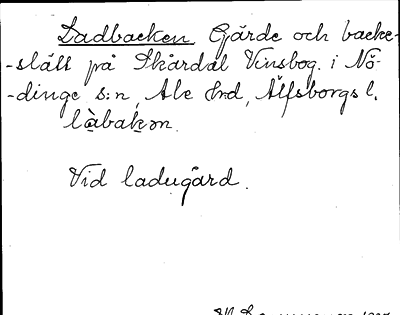 Ladbacken Gärde och backe-
-slätt på Skårdal Vinsbog. i Nö-
-dinge s:n, Ale Hrd, Älfsborgs l.
làbakən.
Vid ladugård.